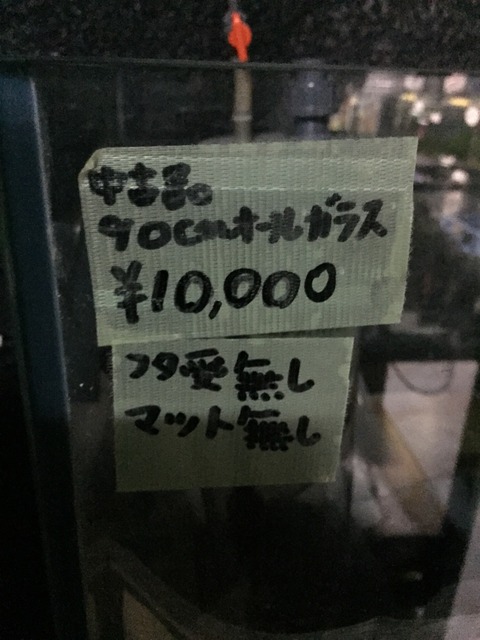 中古品。
90cmオールガラス
¥10,000
フタ受無し
マット無し